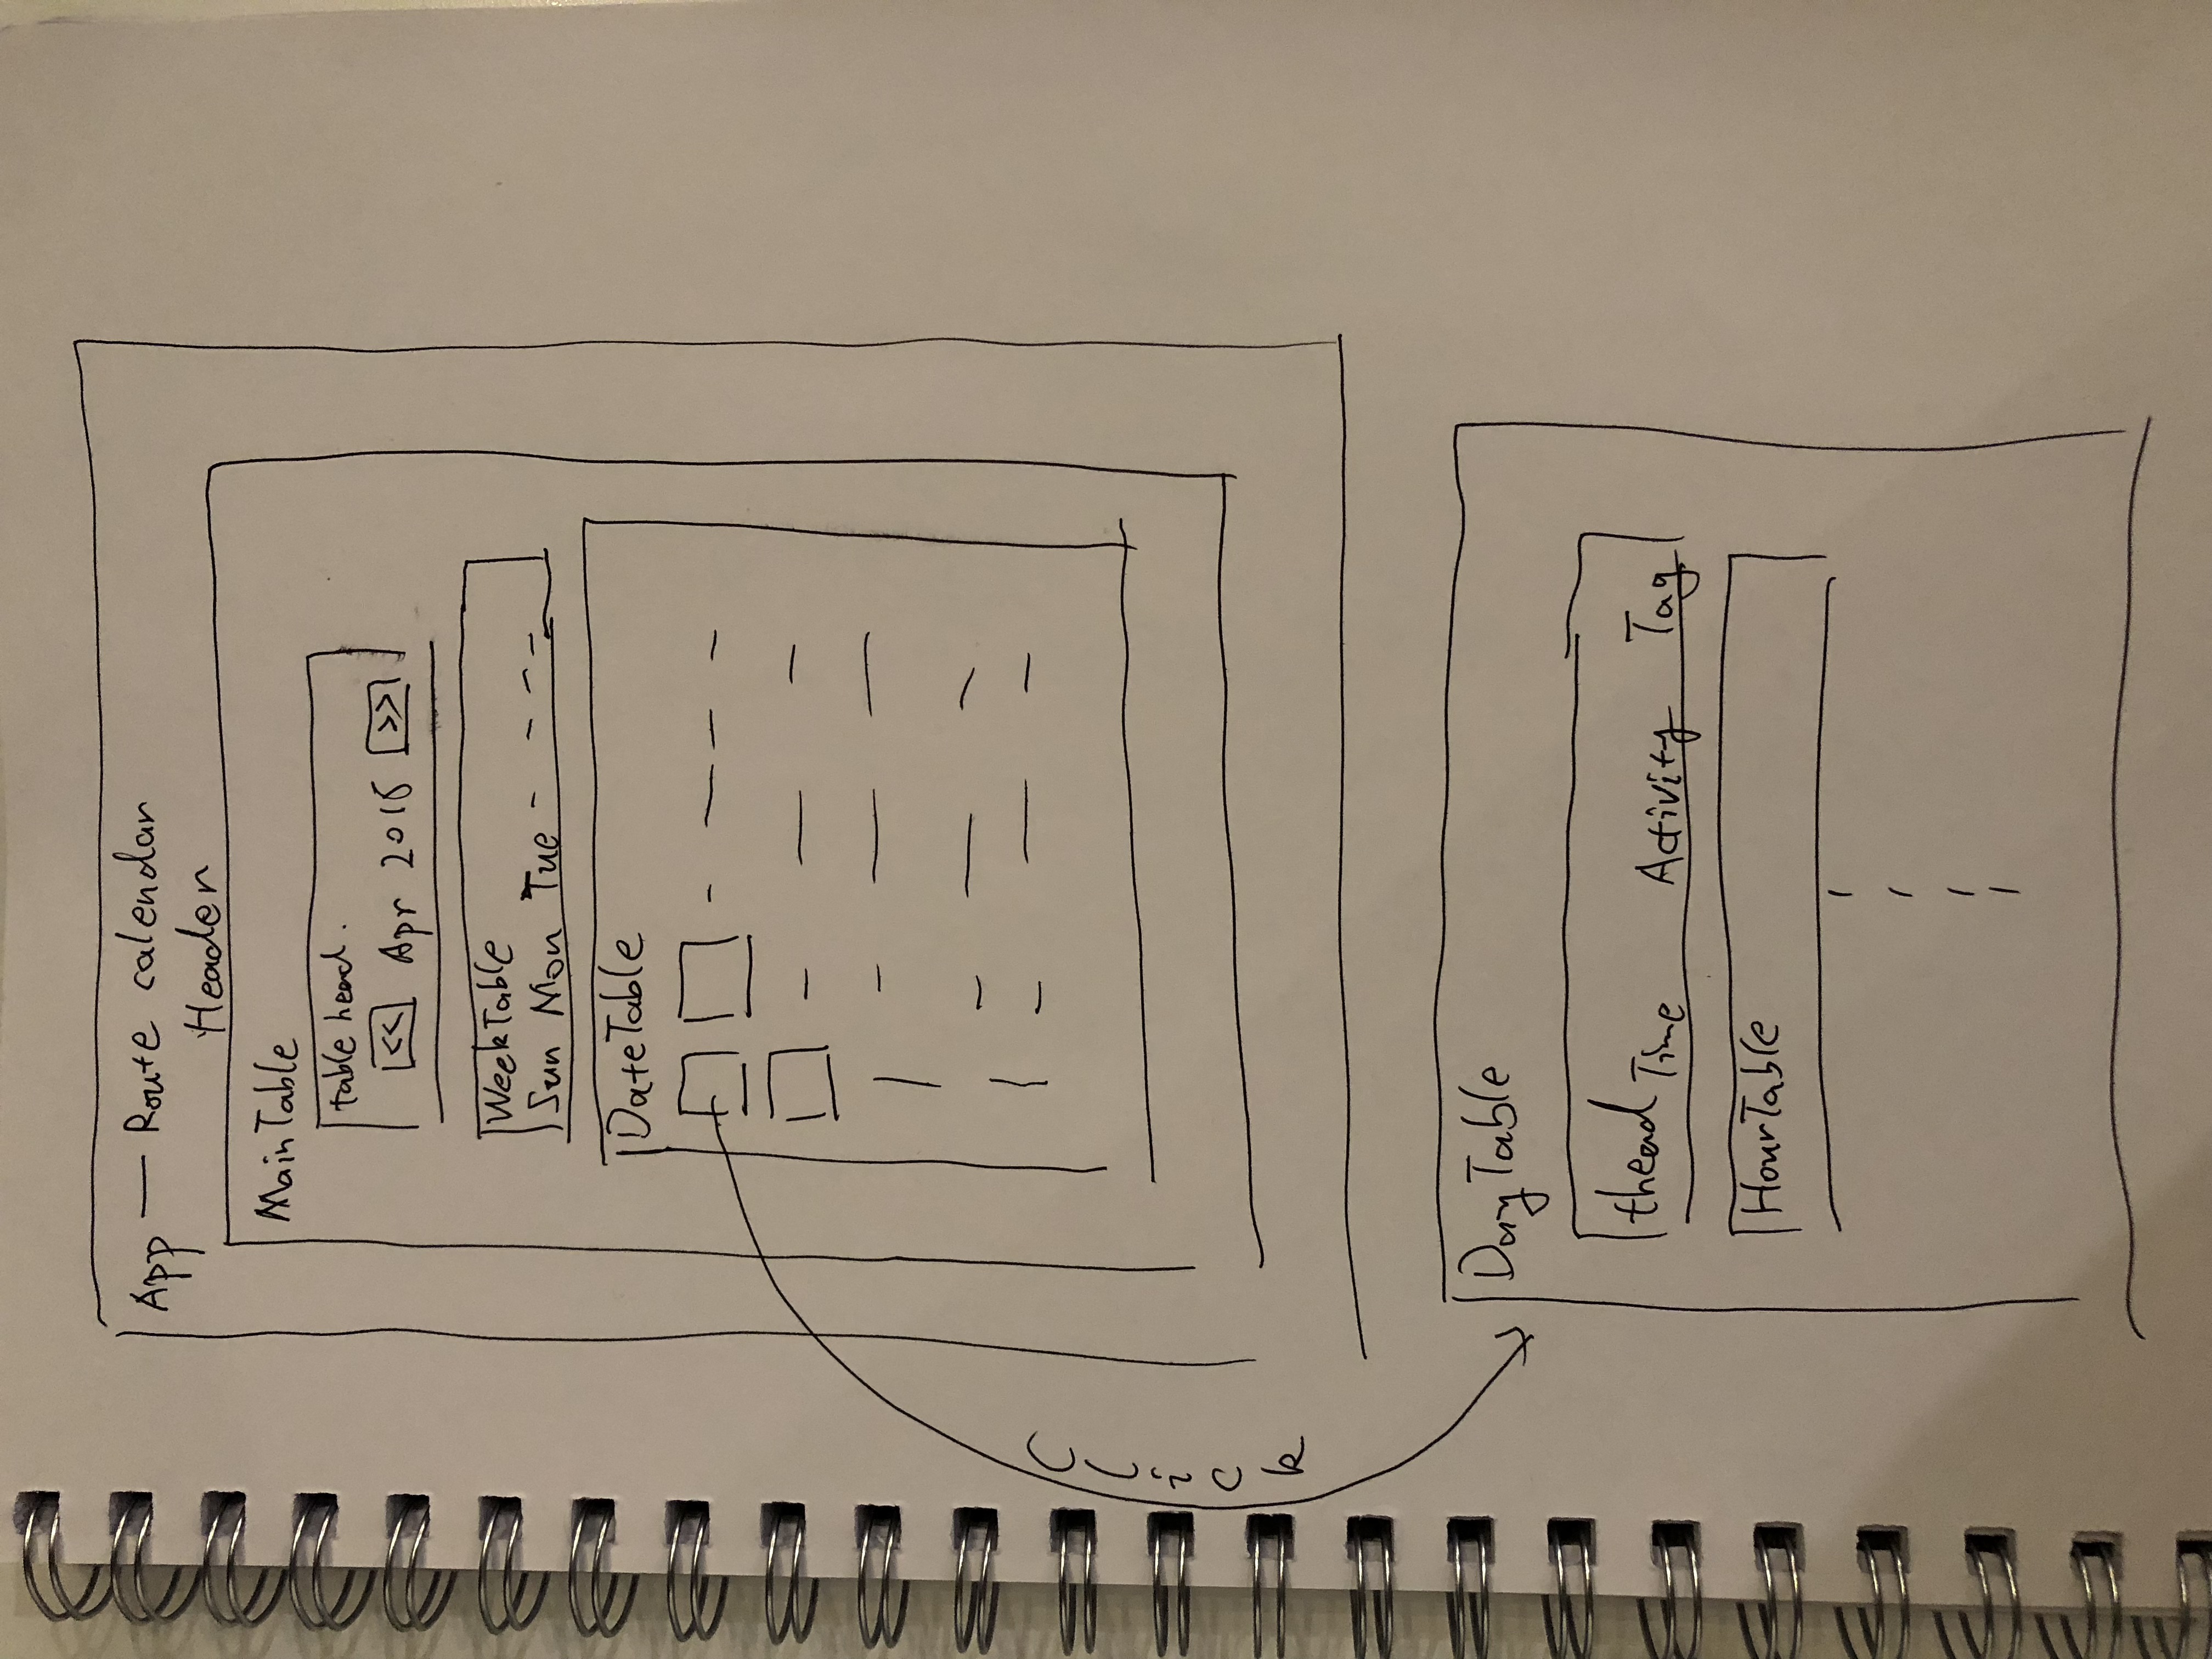 App — Route calendar
Header
MainTable
table head.
<< Apr 2018 >>
WeekTable
Sun Mon Tue - - - -
DateTable
Click
DayTable
thead Time Activity Tag
HourTable